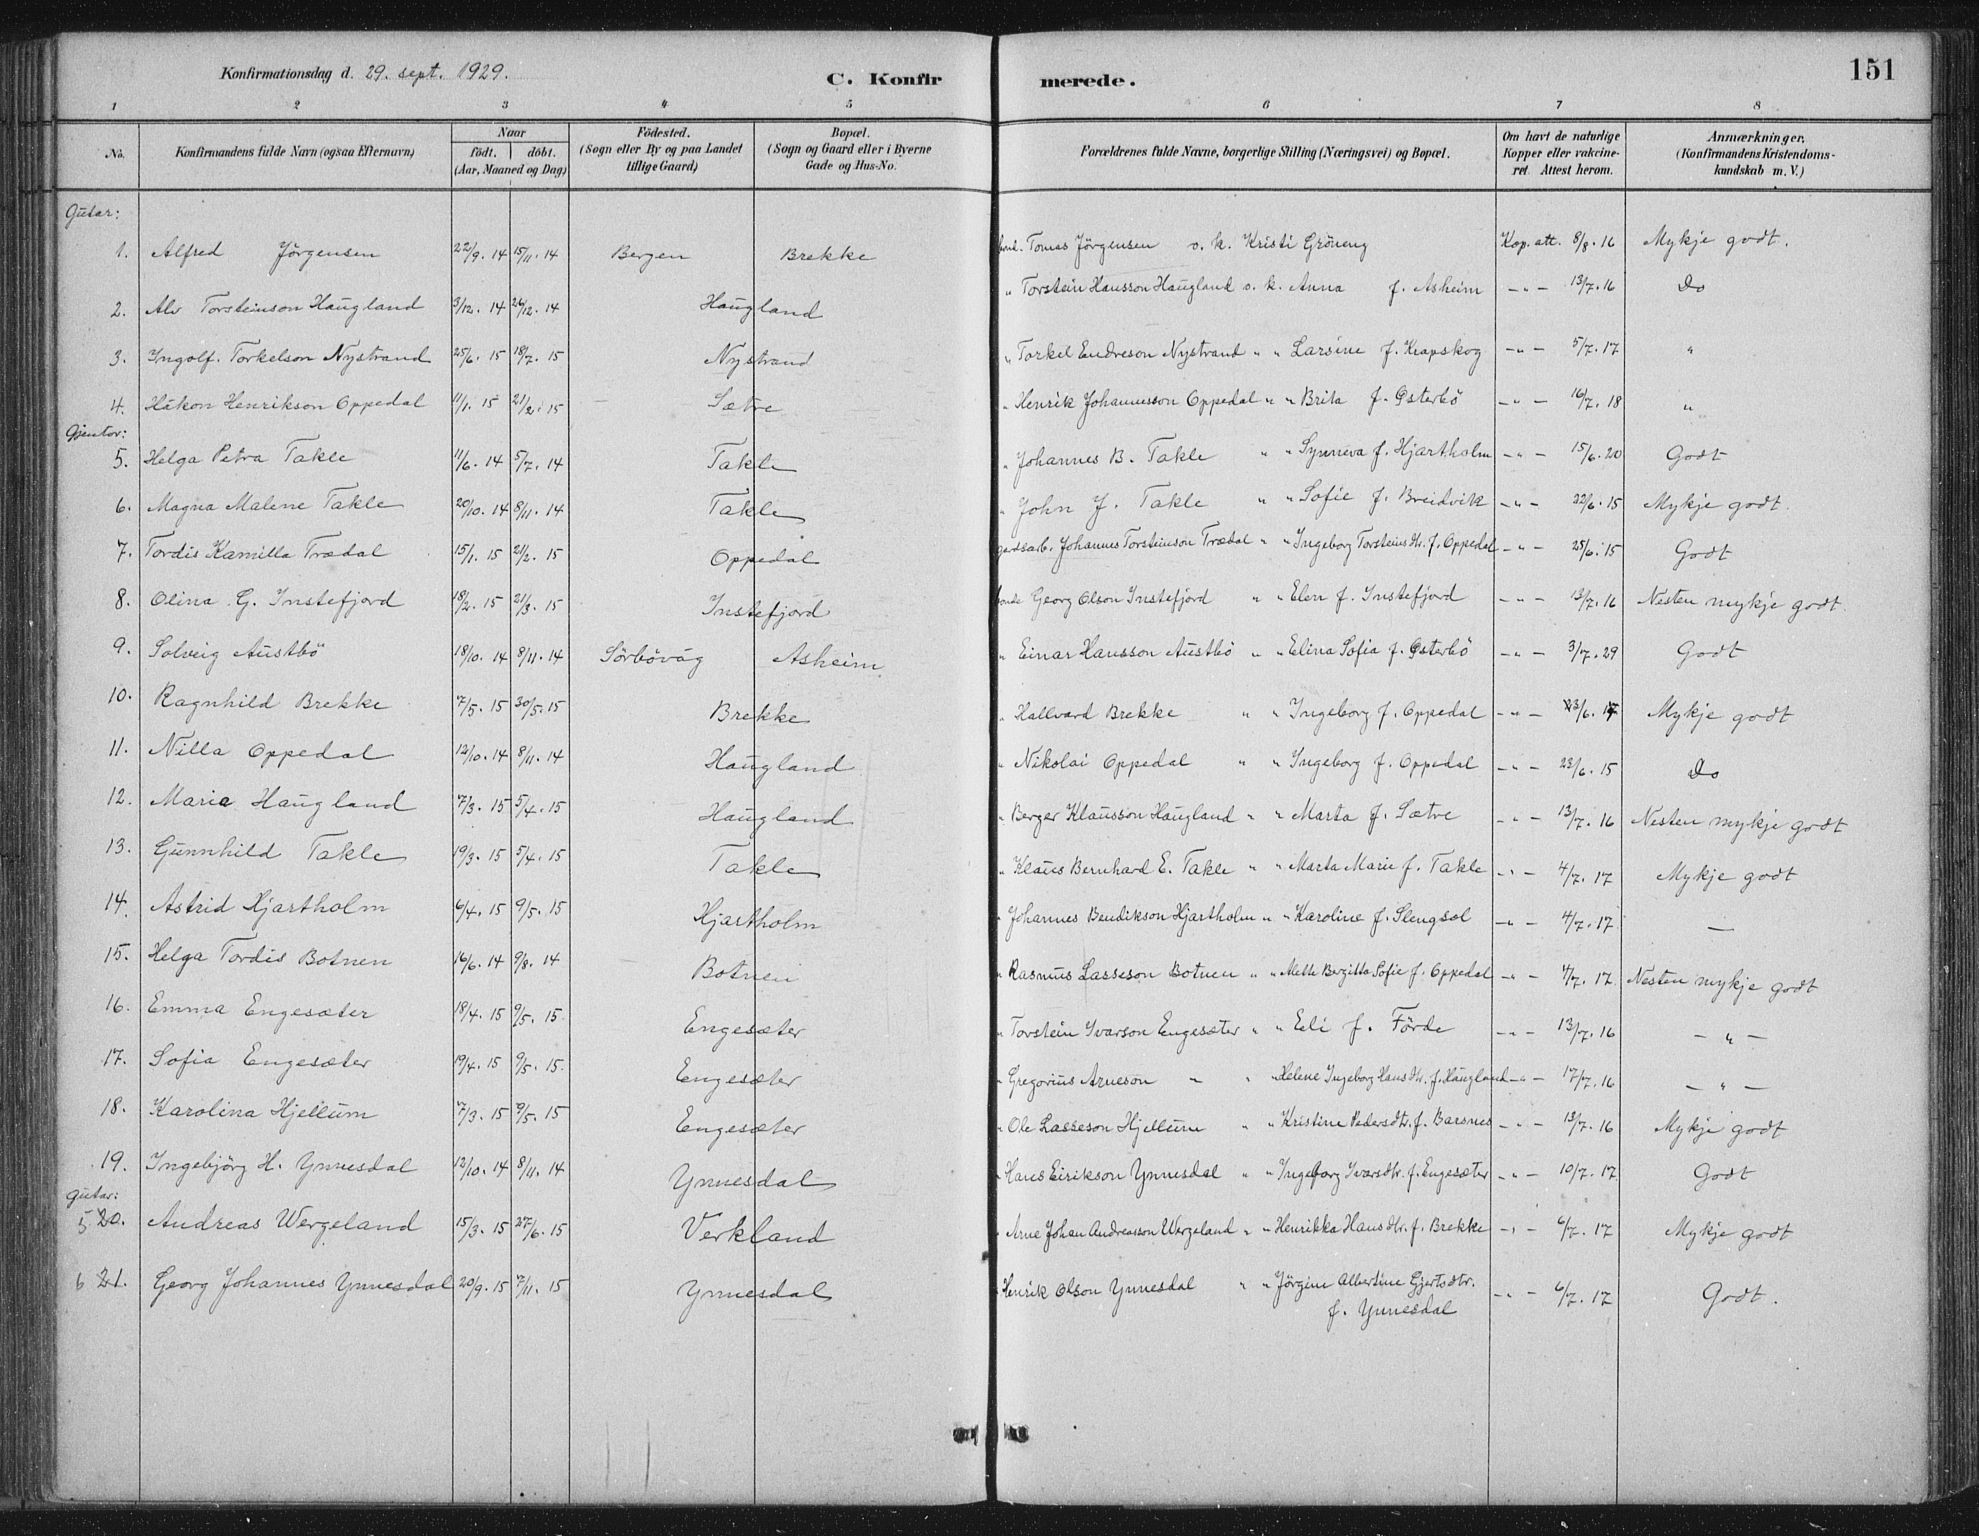 Konfirmationsdag d. 29. sept. 1929.
C. Konfirmerede.
151
1 2 3 4 5 6 7 8
No.
Konfirmandens fulde Navn (ogsaa Efternavn)
Naar
født. | døbt.
(Aar, Maaned og Dag)
Födested.
(Sogn eller By og paa Landet
tillige Gaard)
Bopæl.
(Sogn og Gaard eller i Byerne
Gade og Hus-No.
Forældrenes fulde Navne, borgerlige Stilling (Næringsvei) og Bopæl.
Om havt de naturlige
Kopper eller vakcine-
ret Attest herom.
Anmærkninger.
(Konfirmandens Kristendoms-
kundskab m. V.)
Gutar:
1. Alfred Jörgensen 22/9. 14 15/11. 14 Bergen Brekke Tomas Jörgensen o. k. Kristi Gröneng Kop. att. 8/8. 16 Mykje godt.
2. Alv Torsteinson Haugland 3/12. 14 26/12. 14 Haugland " Torstein Hansson Haugland o. k. Anna f. Asheim -"- 13/7. 16 Do
3. Ingolf Torkelson Nystrand 25/6. 15 18/7. 15 Nystrand " Torkel Endreson Nystrand " " Larsine f. Krapskog -"- 5/7. 17 "
4. Håkon Henrikson Oppedal 11/1. 15 21/2. 15 Sætre " Henrik Johannesson Oppedal " " Brita f. Østerbö -"- 16/7. 18 "
Gjentor:
5. Helga Petra Takle 11/6. 14 5/7. 14 Takle " Johannes B. Takle " " Synneva f. Hjartholm -"- 15/6. 20 Godt
6. Magna Malene Takle 20/10. 14 8/11. 14 Takle " John J. Takle " " Sofie f. Breidvik -"- 22/6. 15 Mykje godt.
7. Tordis Kamilla Trædal 15/1. 15 21/2. 15 Oppedal gardsarb. Johannes Torsteinson Trædal " " Ingeborg Torsteinsdtr. f. Oppedal -"- 25/6. 15 Godt
8. Olina G. Instefjord 18/2. 15 21/3. 15 Instefjord bonde Georg Olson Instefjord " " Elen f. Instefjord -"- 13/7. 16 Nesten mykje godt.
9. Solveig Austbö 18/10. 14 8/11. 14 Sörbövåg Asheim " Einar Hansson Austbö " " Elina Sofia f. Østerbö -"- 3/7. 29 Godt
10. Ragnhild Brekke 7/5. 15 30/5. 15 Brekke " Hallvard Brekke " " Ingeborg f. Oppedal -"- 23/6. 17 Mykje godt
11. Nilla Oppedal 12/10. 14 8/11. 14 Haugland " Nikolai Oppedal " " Ingeborg f. Oppedal -"- 23/6. 15 Do
12. Marie Haugland 7/3. 15 5/4. 15 Haugland " Berger Klausson Haugland " " Marta f. Sætre -"- 13/7. 16 Nesten mykje godt
13. Gunnhild Takle 19/3. 15 5/4. 15 Takle " Klaus Bernhard E. Takle " " Marta Marie f. Takle -"- 4/7. 17 Mykje godt
14. Astrid Hjartholm 6/4. 15 9/5. 15 Hjartholm " Johannes Bendikson Hjartholm " " Karoline f. Slengsol -"- 4/7. 17 —
15. Helga Tordis Botnen 16/6. 14 9/8. 14 Botnen " Rasmus Lasseson Botnen " " Mette Bergitta Sofie f. Oppedal -"- 4/7. 17 Nesten mykje godt
16. Emma Engesæter 18/4. 15 9/5. 15 Engesæter " Torstein Ivarson Engesæter " " Eli f. Förde -"- 13/7. 16 - " -
17. Sofia Engesæter 19/4. 15 9/5. 15 Engesæter " Gregorius Arneson " " " Helene Ingeborg Hansdtr. f. Haugland -"- 17/7. 16 - " -
18. Karolina Hjellum 7/3. 15 9/5. 15 Engesæter " Ole Lasseson Hjellum " " Kristine Pedersdtr. f. Barsnes -"- 13/7. 16 Mykje godt
19. Ingebjörg H. Ynnesdal 12/10. 14 8/11. 14 Ynnesdal " Hans Eirikson Ynnesdal " " Ingeborg Ivarsdtr. f. Engesæter -"- 10/7. 17 Godt
Gutar:
5 20. Andreas Wergeland 15/3. 15 27/6. 15 Verkland " Arne Johan Andreasson Wergeland " " Henrikka Hansdtr. f. Brekke -"- 6/7. 17 Mykje godt
6 21. Georg Johannes Ynnesdal 20/9. 15 7/11. 15 Ynnesdal " Henrik Olson Ynnesdal " " Jörgine Albertine Gjertsdtr. -"- 6/7. 17 Godt.
f. Ynnesdal